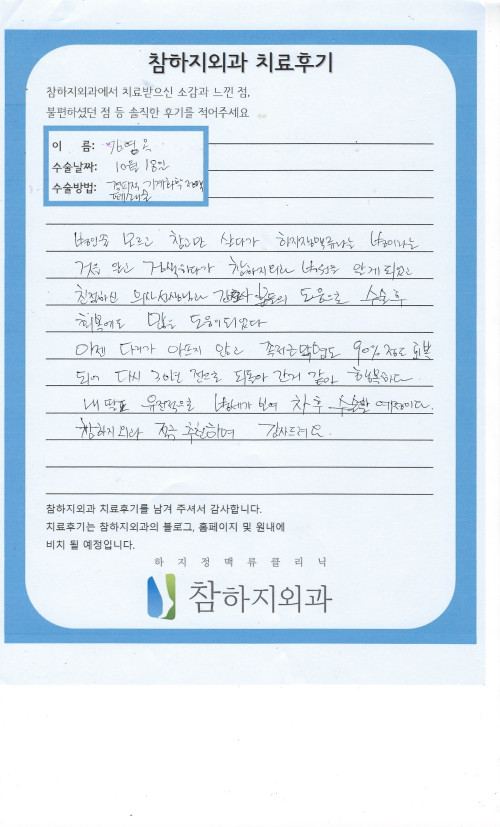 참하지외과 치료후기
참하지외과에서 치료받으신 소감과 느낀 점,
불편하셨던 점 등 솔직한 후기를 적어주세요
이 름:
수술날짜: 10월 18일
수술방법: 경피적 기계화학 정맥
폐쇄술
병인줄 모르고 참고만 살다가 하지정맥류라는 병이라는
것을 알고 검색하다가 참하지외과 병원을 알게 되었고
친절하신 의사선생님과 간호사 분들의 도움으로 수술 후
회복에도 많은 도움이 되었다
이젠 다리가 아프지 않고 족저근막염도 90% 정도 회복
되어 다시 30년 전으로 되돌아 간거 같아 행복하다.
내 딸도 유전적으로 병세가 보여 차후 수술할 예정이다.
참하지외과 적극 추천하며 감사드려요.
참하지외과 치료후기를 남겨 주셔서 감사합니다.
치료후기는 참하지외과의 블로그, 홈페이지 및 원내에
비치 될 예정입니다.
하지정맥류클리닉
참하지외과